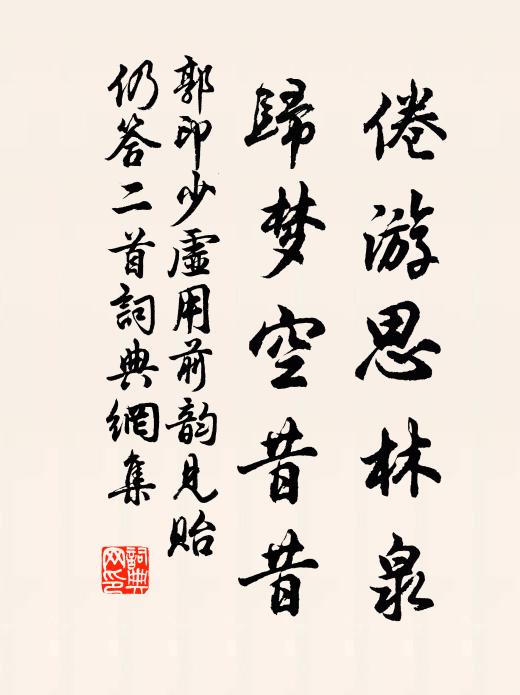 倦游思林泉
歸梦空昔昔
郭印少虛用前韵見貽
仍答二首詞典網集
詞典网印